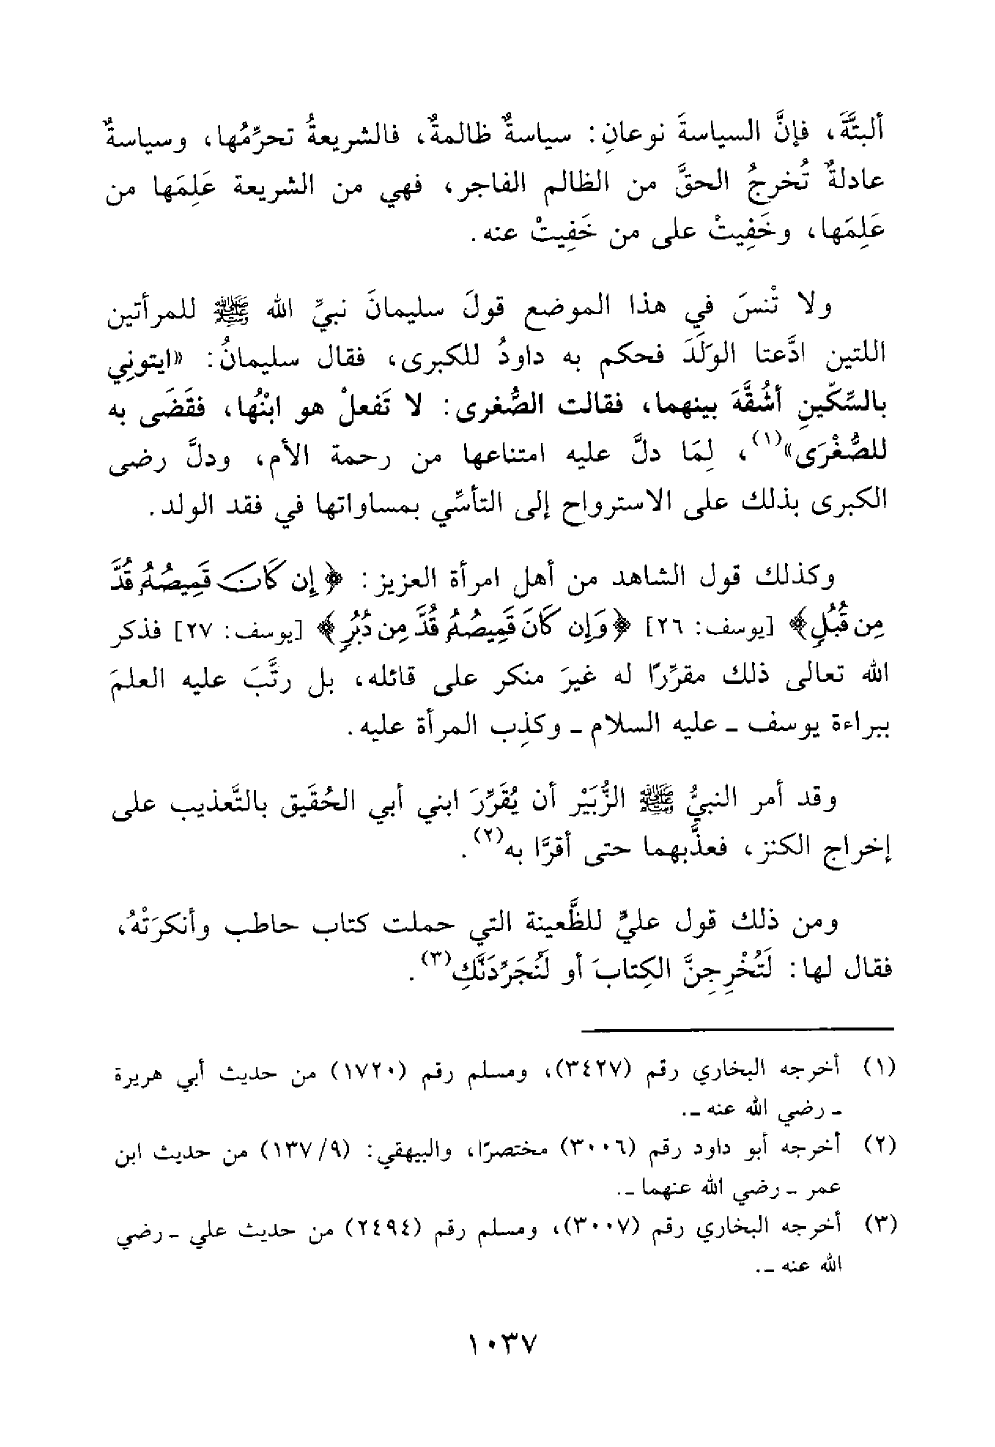 ألبتَّةَ، فإنَّ السياسةَ نوعانِ: سياسةٌ ظالمةٌ، فالشريعةُ تحرِّمُها، وسياسةٌ
عادلةٌ تُخرجُ الحقَّ من الظالم الفاجر، فهي من الشريعة عَلِمَها من
عَلِمَها، وخَفِيتْ على من خَفِيتْ عنه.
ولا تْنسَ في هذا الموضع قولَ سليمانَ نبيِّ الله ﷺ للمرأتين
اللتين ادَّعتا الوَلَدَ فحكم به داودُ للكبرى، فقال سليمانُ: «ايتونِي
بالسِّكّينِ أشُقَّهَ بينهما، فقالت الصُّغرى: لا تَفعلْ هو ابنْهُا، فقَضَى به
للصُّغْرَى»(١)، لِمَا دلَّ عليه امتناعها من رحمة الأم، ودلَّ رضى
الكبرى بذلك على الاسترواح إلى التأسِّي بمساواتها في فقد الولد.
وكذلك قول الشاهد من أهل امرأة العزيز: ﴿إِن كَانَ قَمِيصُهُۥ قُدَّ
مِن قُبُلٍ﴾ [يوسف: ٢٦] ﴿وَإِن كَانَ قَمِيصُهُۥ قُدَّ مِن دُبُرٍ﴾ [يوسف: ٢٧] فذكر
الله تعالى ذلك مقرِّرًا له غيرَ منكر على قائله، بل رتَّبَ عليه العلمَ
ببراءة يوسف ـ عليه السلام ـ وكذِب المرأة عليه.
وقد أمر النبيُّ ﷺ الزُّبَيْر أن يُقَرِّرَ ابني أبي الحُقَيق بالتَّعذيب على
إخراج الكنز، فعذَّبهما حتى أقرَّا به(٢).
ومن ذلك قول عليٍّ للظَّعينة التي حملت كتاب حاطب وأنكرَتْهُ،
فقال لها: لَتُخْرِجِنَّ الكِتابَ أو لَنُجَرِّدَنَّكِ(٣).
(١) أخرجه البخاري رقم (٣٤٢٧)، ومسلم رقم (١٧٢٠) من حديث أبي هريرة
ـ رضي الله عنه ـ.
(٢) أخرجه أبو داود رقم (٣٠٠٦) مختصرًا، والبيهقي: (٩/ ١٣٧) من حديث ابن
عمر ـ رضي الله عنهما ـ.
(٣) أخرجه البخاري رقم (٣٠٠٧)، ومسلم رقم (٢٤٩٤) من حديث علي ـ رضي
الله عنه ـ.
١٠٣٧